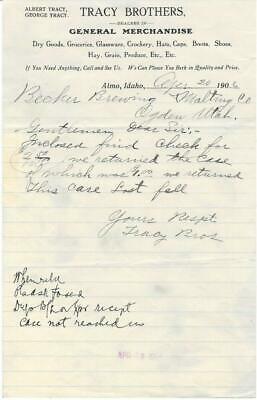 ALBERT TRACY,
GEORGE TRACY.
TRACY BROTHERS,
DEALERS IN
GENERAL MERCHANDISE
Dry Goods, Groceries, Glassware, Crockery, Hats, Caps, Boots, Shoes,
Hay, Grain, Produce, Etc., Etc.
If You Need Anything, Call and See Us. We Can Please You Both in Quality and Price.
Almo, Idaho, Apr 20 1906
Becker Brewing & Malting Co
Ogden Utah.
Gentlemen Dear Sir:-
Inclosed find Check for
we returned the case
which was we returned
this case last fall
Yours Respt
Tracy Bros
When
recept
Case not reached us
APR